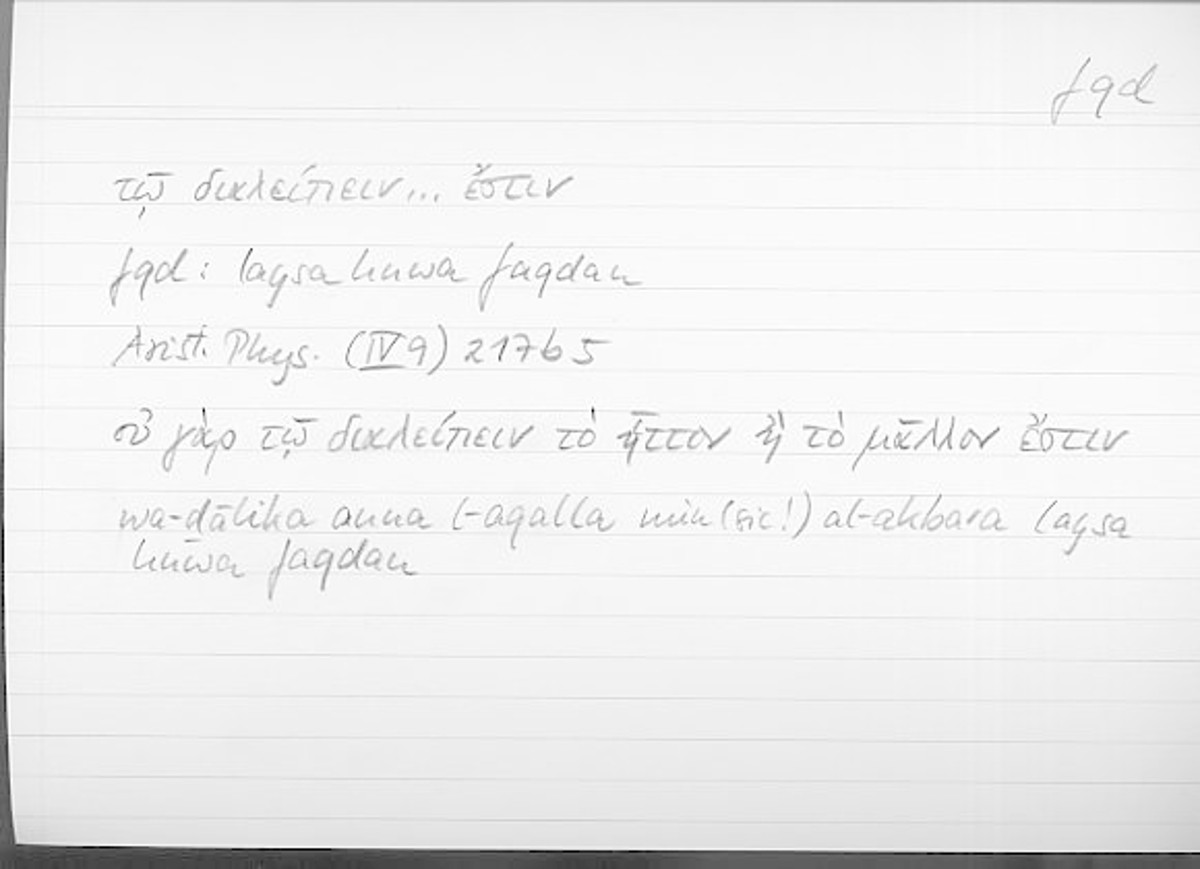 fqd
τῷ διαλείπειν... ἔστιν
fqd: laysa huwa faqdan
Arist. Phys. (IV 9) 217b5
οὐ γὰρ τῷ διαλείπειν τὸ ἧττον ἢ τὸ μᾶλλον ἔστιν
wa-dālika anna l-aqalla min (sic!) al-akbara laysa
huwa faqdan